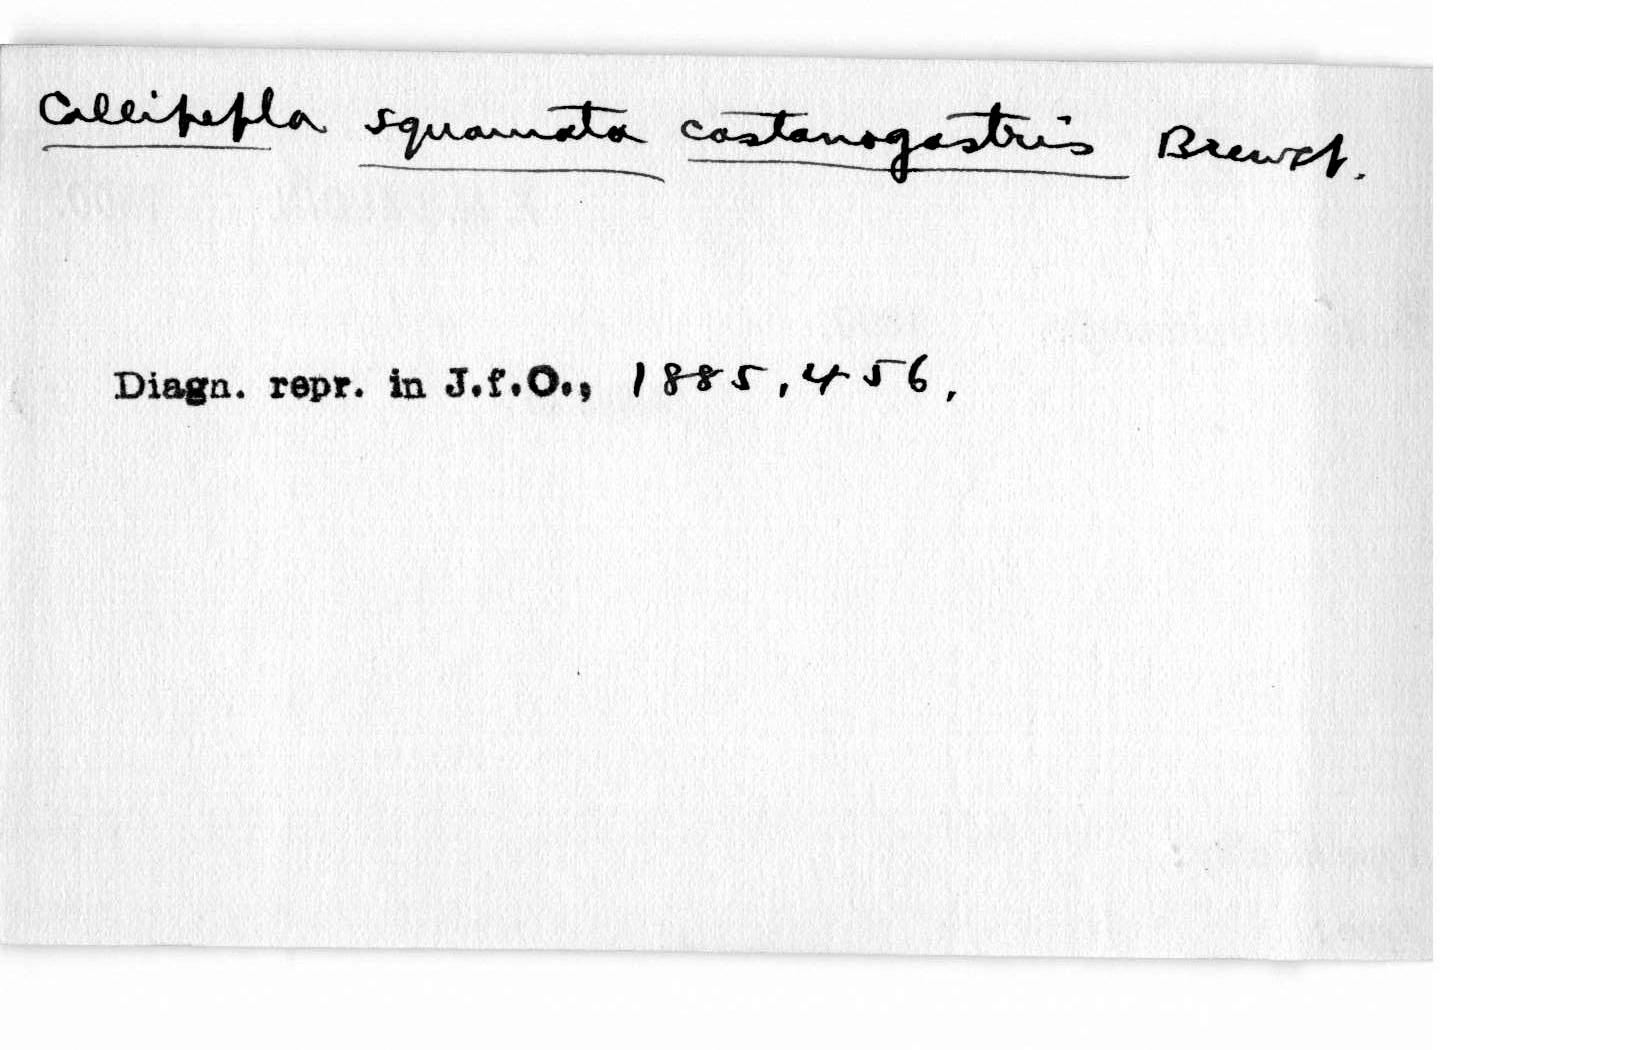 Callipepla squamata castanogastris Brewst.
Diagn. repr. in J.f.O., 1885, 456,